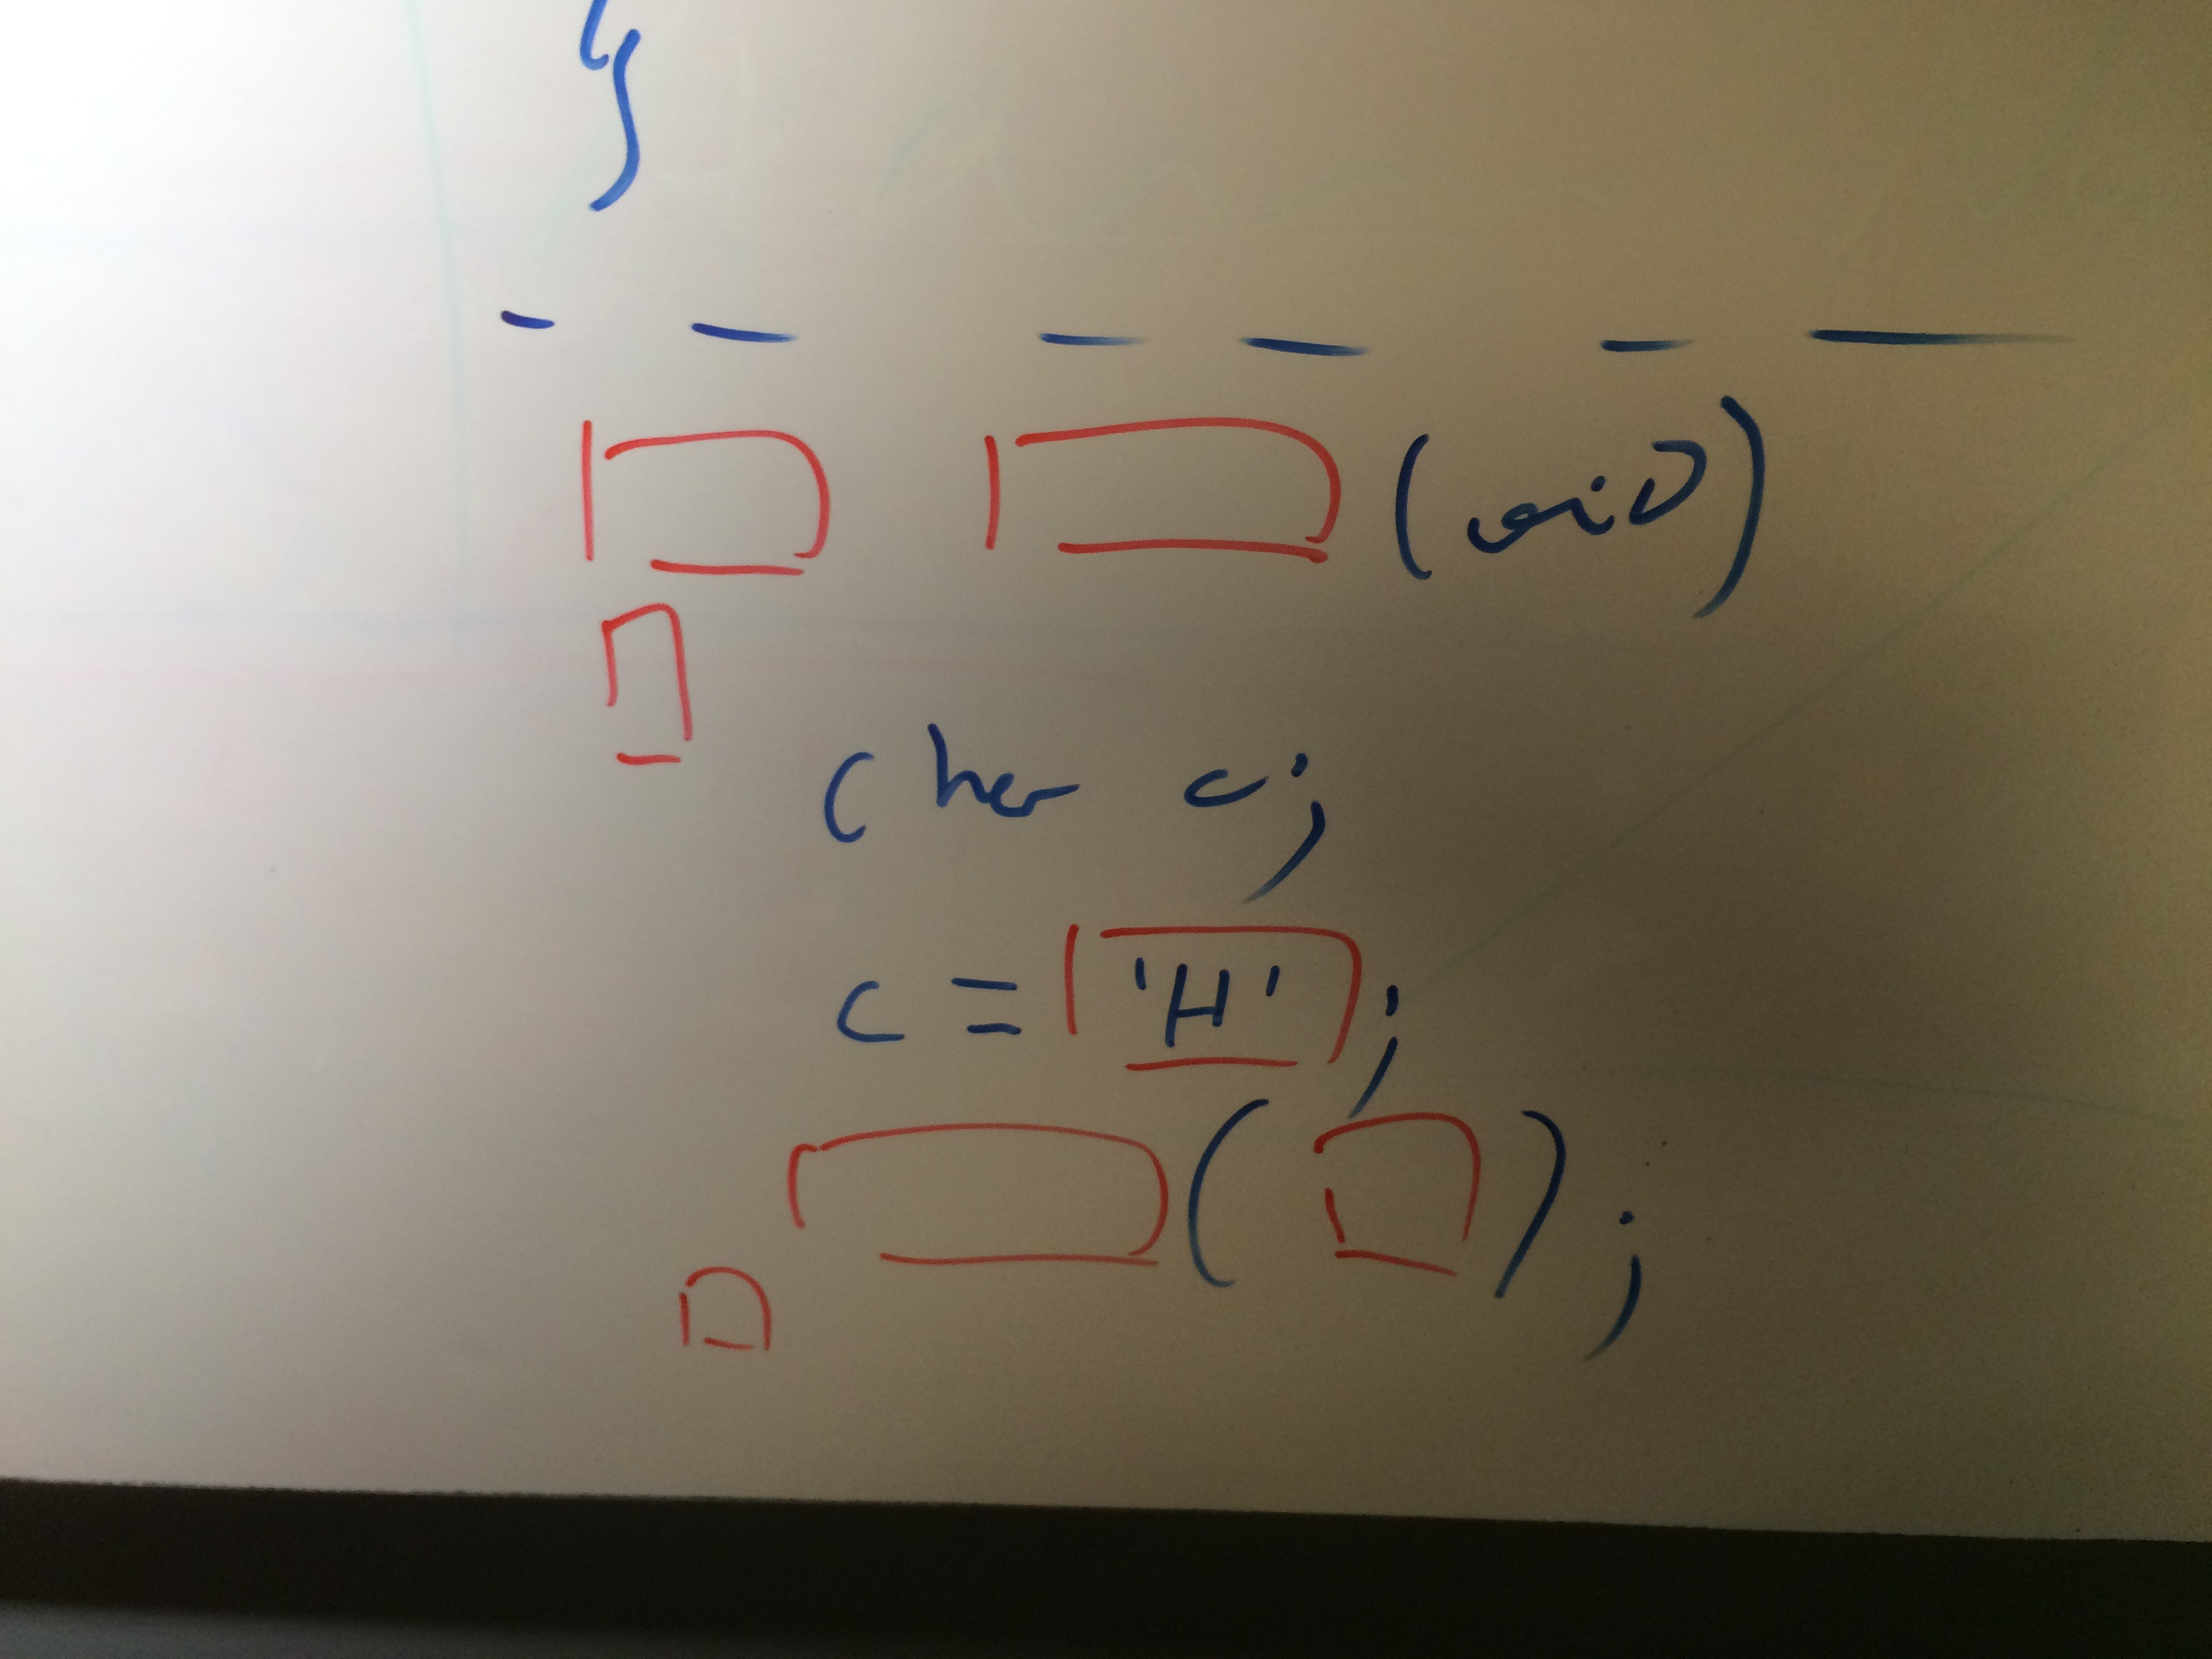 }
- - - - - -
(void)
char c;
c = 'H';
( );